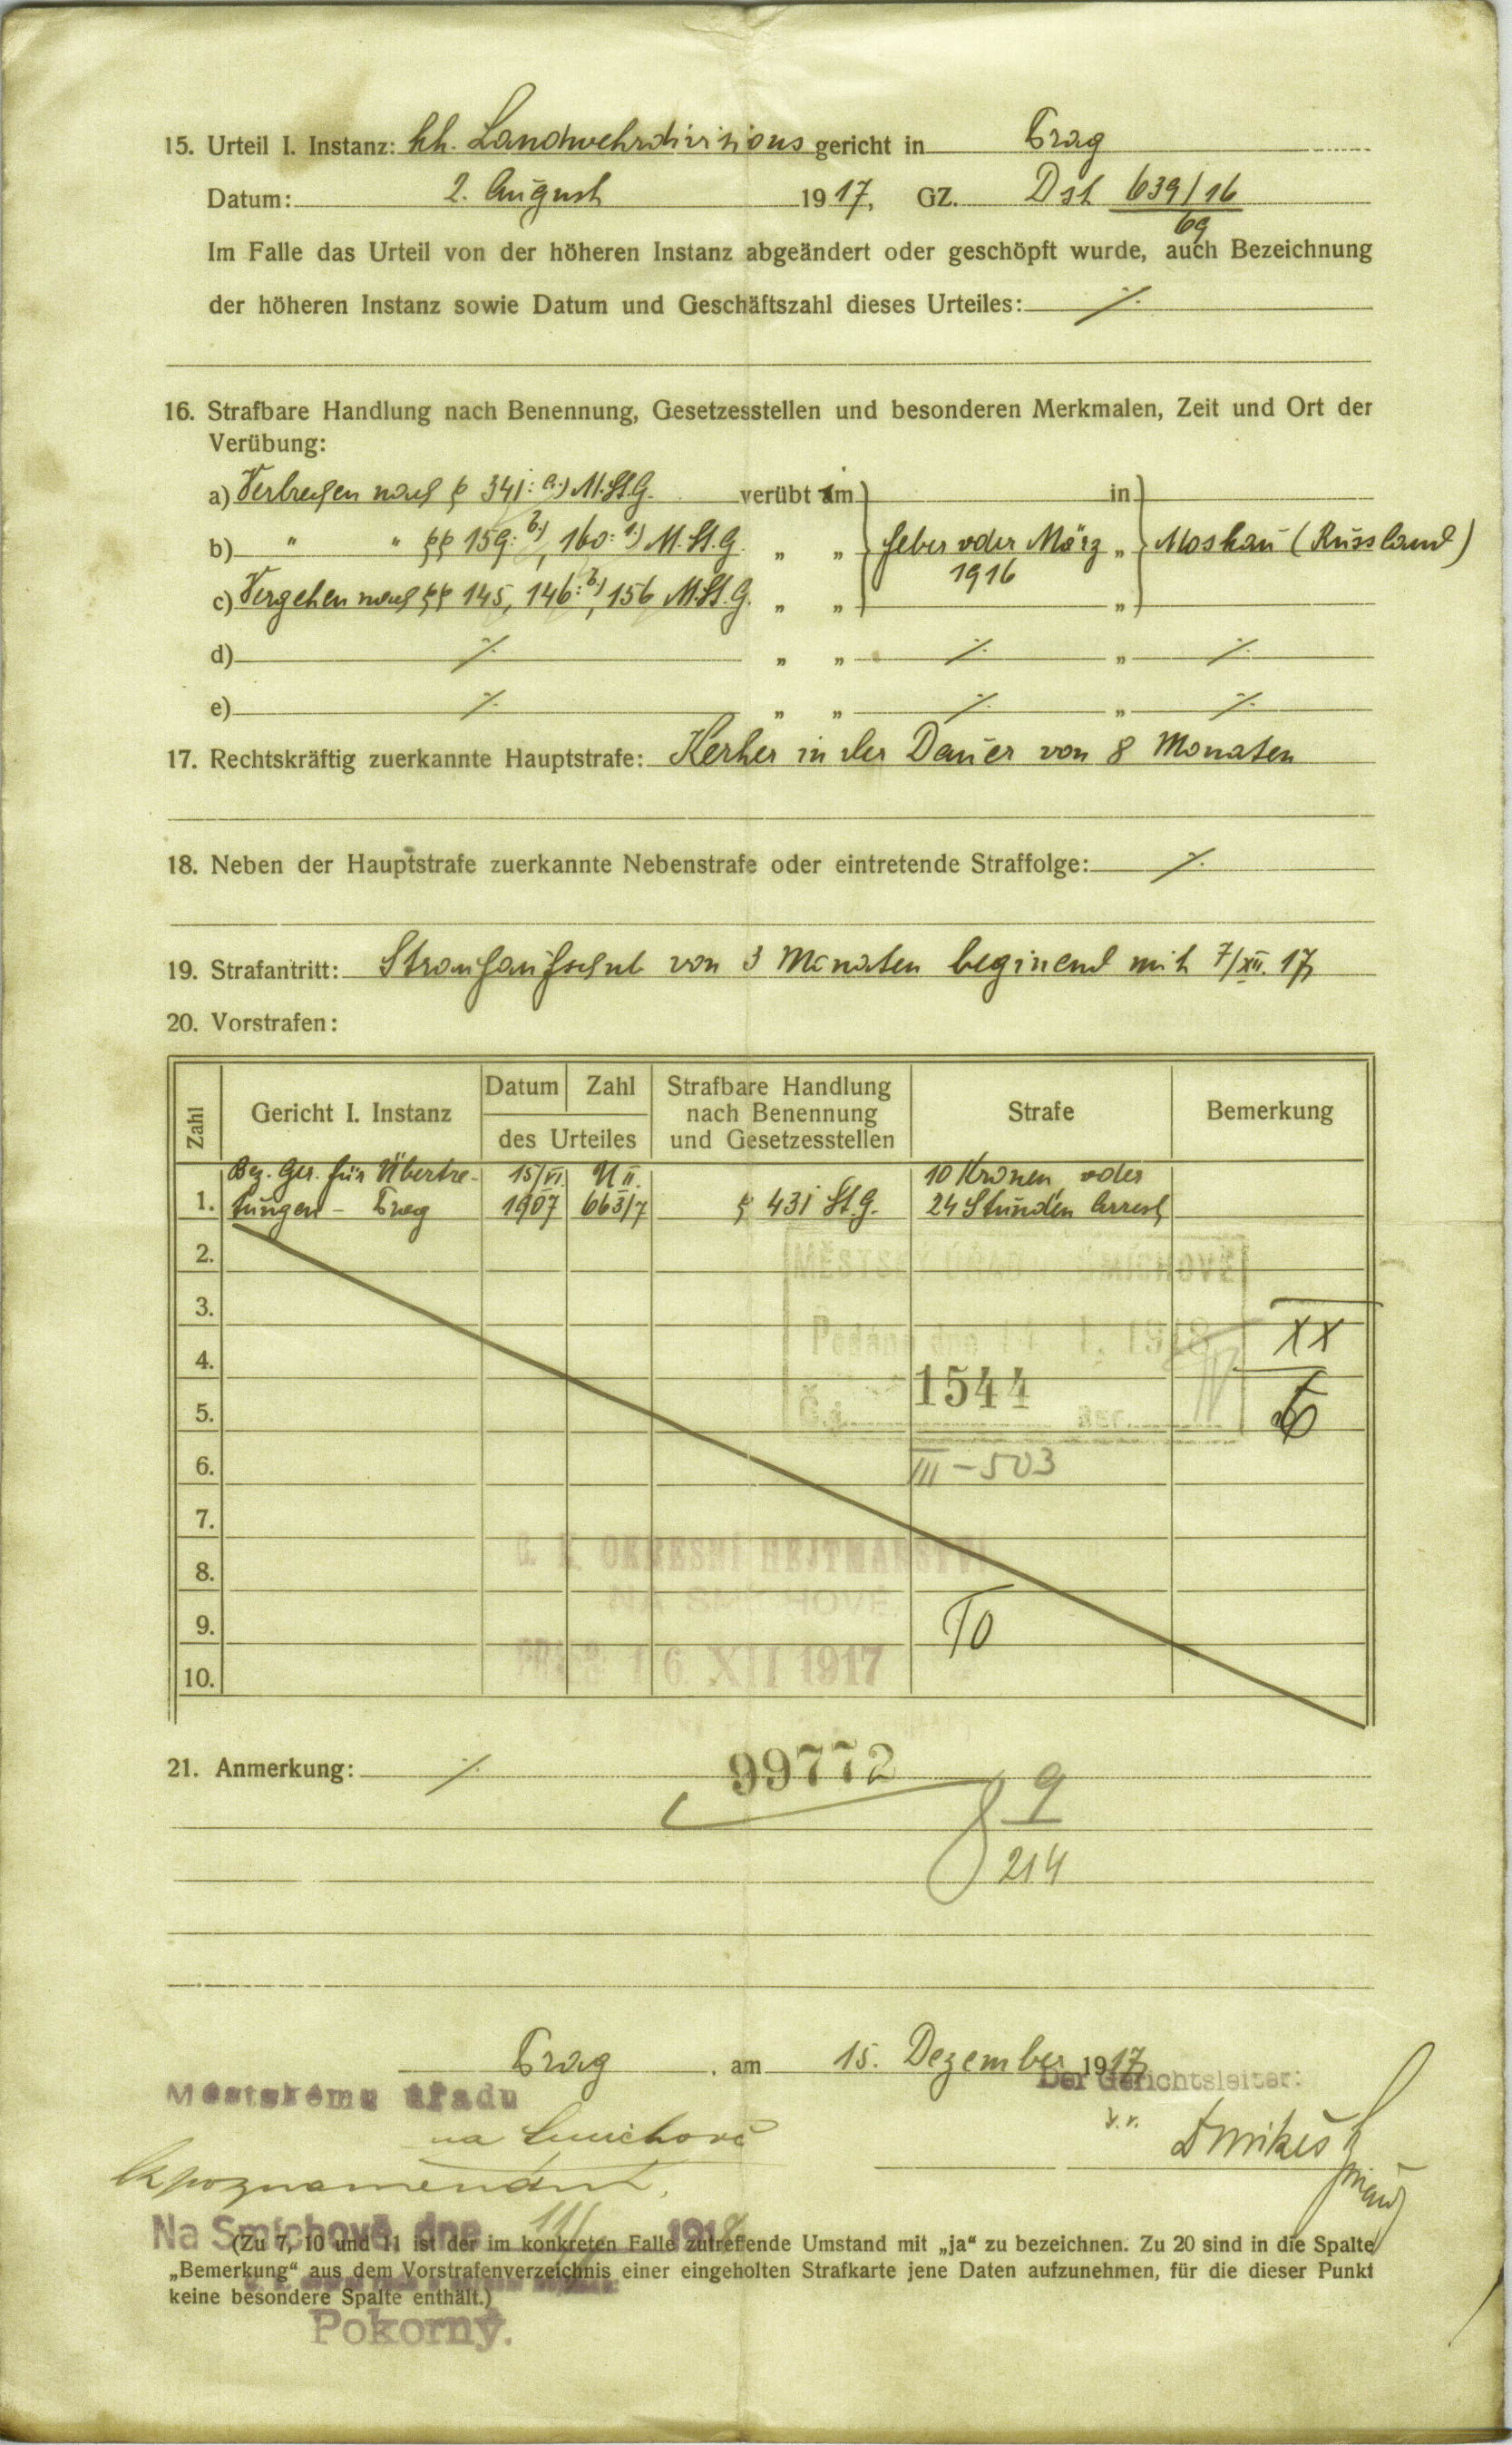 15. Urteil I. Instanz: kk. Landwehrdivisions gericht in Prag
Datum: 2. August 1917, GZ. Dst 639/16
69
Im Falle das Urteil von der höheren Instanz abgeändert oder geschöpft wurde, auch Bezeichnung
der höheren Instanz sowie Datum und Geschäftszahl dieses Urteiles: ./.
16. Strafbare Handlung nach Benennung, Gesetzesstellen und besonderen Merkmalen, Zeit und Ort der
Verübung:
a) Verbrechen nach § 341: a.) M.St.G. verübt im in
b) " " §§ 159: b.), 160: a.) M.St.G. " " Feber oder März " Moskau (Russland)
1916
c) Vergehen nach §§ 145, 146: b.), 156 M.St.G. " " "
d) ./. " " ./. " ./.
e) ./. " " ./. " ./.
17. Rechtskräftig zuerkannte Hauptstrafe: Kerker in der Dauer von 8 Monaten
18. Neben der Hauptstrafe zuerkannte Nebenstrafe oder eintretende Straffolge: ./.
19. Strafantritt: Strafaufschub von 3 Monaten beginend mit 7/XII. 17
20. Vorstrafen:
Zahl Gericht I. Instanz Datum Zahl des Urteiles Strafbare Handlung nach Benennung und Gesetzesstellen Strafe Bemerkung
Bez. Ger. für Übertre- 15/VI. U II. 10 Kronen oder
1. tungen - Prag 1907 663/7 § 431 St.G. 24 Stunden Arrest
2.
MĚSTSKÝ ÚŘAD SMÍCHOVĚ
3.
XX
Podáno dne 11. 1. 1918
4.
1544
5.
Č.j.
6.
III - 503
7.
C. K. OKRESNÍ HEJTMANSTVÍ
8.
NA SMÍCHOVĚ
9.
TO
16. XII 1917
10.
21. Anmerkung: ./. 99772
9
214
Prag, am 15. Dezember 1917
Městskému úřadu Der Gerichtsleiter:
na Smíchově
K poznamenání.
Na Smíchově dne 11/ 1918
(Zu 7, 10 und 11 ist der im konkreten Falle zutreffende Umstand mit „ja“ zu bezeichnen. Zu 20 sind in die Spalte
„Bemerkung“ aus dem Vorstrafenverzeichnis einer eingeholten Strafkarte jene Daten aufzunehmen, für die dieser Punkt
keine besondere Spalte enthält.)
Pokorný.